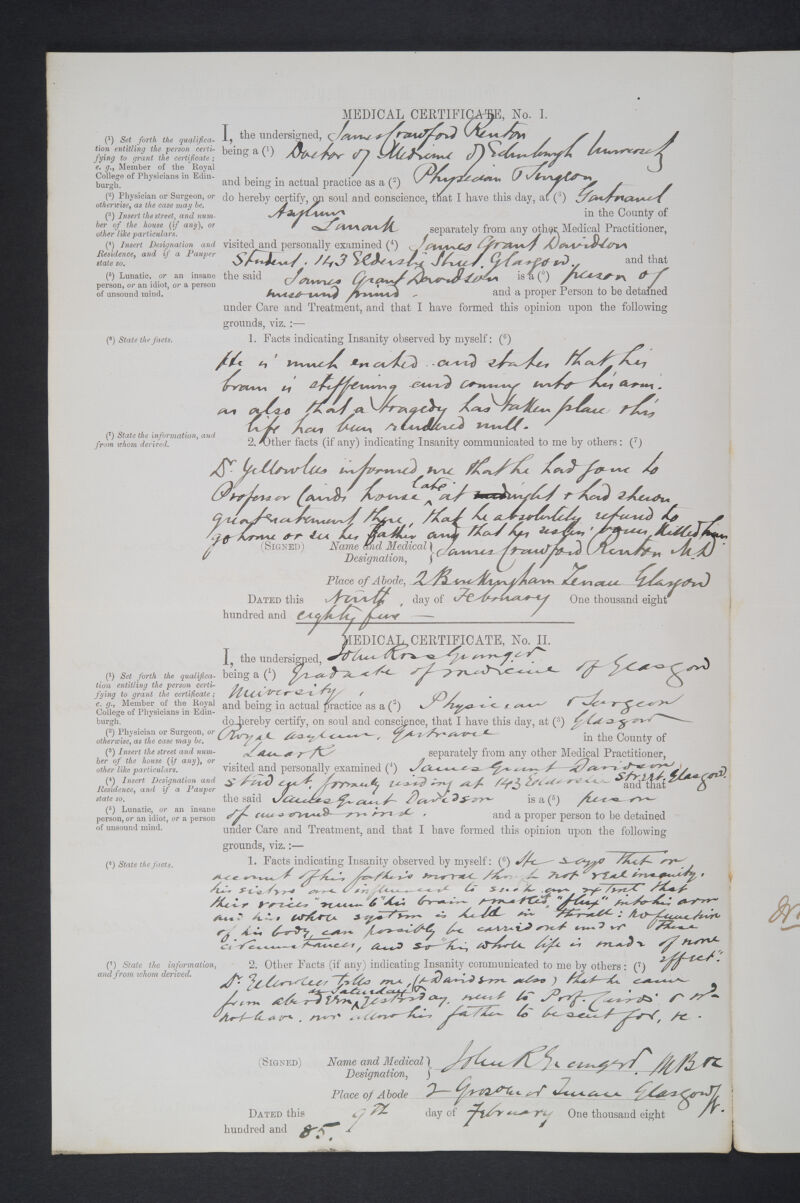 MEDICAL CERTIFICATE, No. I.
I, the undersigned, James Crawford Renton
being a (1) Doctor of Medicine of Edinburgh University
and being in actual practice as a (2) Physician & Surgeon
do hereby certify, on soul and conscience, that I have this day, at (3) Gartnavel
Asylum in the County of
Lanark separately from any other Medical Practitioner,
visited and personally examined (4) James Grant Davidson
Student. 143 Elderslie Street Glasgow. and that
the said James Grant Davidson is a (5) person of
unsound mind. and a proper Person to be detained
under Care and Treatment, and that I have formed this opinion upon the following
grounds, viz. :—
1. Facts indicating Insanity observed by myself: (6)
He is much excited and states that his
brain is stiffening and coming into his arm.
as also that a tragedy has taken place & his
life has been rendered null.
2. Other facts (if any) indicating Insanity communicated to me by others: (7)
Dr. Yellowlees informed me that he had gone to
Professor Cairds house late at night & had shewn
great excitement there, that he absolutely refused to
go home or see his father and that his sisters' voices killed him
(SIGNED) Name and Medical Designation, James Crawford Renton M.D
Place of Abode, 2 Buckingham Terrace Glasgow
DATED this Ninth day of February One thousand eight
hundred and eighty five —
(1) Set forth the qualifica-
tion entitling the person certi-
fying to grant the certificate;
e. g., Member of the Royal
College of Physicians in Edin-
burgh.
(2) Physician or Surgeon, or
otherwise, as the case may be.
(3) Insert the street, and num-
ber of the house (if any), or
other like particulars.
(4) Insert Designation and
Residence, and if a Pauper
state so.
(5) Lunatic, or an insane
person, or an idiot, or a person
of unsound mind.
(6) State the facts.
(7) State the information, and
from whom derived.
MEDICAL CERTIFICATE, No. II.
I, the undersigned, John Ross Grainger
being a (1) Graduate of medicine of Glasgow
University,
and being in actual practice as a (2) Physician & Surgeon
do hereby certify, on soul and conscience, that I have this day, at (3) Glasgow
Royal Asylum, Gartnavel in the County of
Lanark separately from any other Medical Practitioner,
visited and personally examined (4) James Grant Davidson
student. formerly residing at 143 Elderslie Street. Glasgow. and that
the said James Grant Davidson is a (5) person
of unsound mind. and a proper person to be detained
under Care and Treatment, and that I have formed this opinion upon the following
grounds, viz. :—
1. Facts indicating Insanity observed by myself: (6) He says that on
account of his father's moral though not real insanity,
his sisters are influenced to such an extent that
their voices "numb" his brain & matter "flux" into his arm
and his whole system is held in thrall: no function
of his body can possibly be carried out under these
circumstances, and so "his whole life is made of none
effect".
2. Other Facts (if any) indicating Insanity communicated to me by others: (7)
Dr. Yellowlees tells me, (& Davidson also) that he came
from Aberdeen on Saturday & yesterday went to Prof. Cairds' & wd
not leave, nor allow his father to be sent for, &c.
(SIGNED) Name and Medical Designation, John R Grainger. M B &c
Place of Abode 2 Grosvenor Terrace Glasgow W.
DATED this 9th day of February One thousand eight
hundred and 85.
(1) Set forth the qualifica-
tion entitling the person certi-
fying to grant the certificate;
e. g., Member of the Royal
College of Physicians in Edin-
burgh.
(2) Physician or Surgeon, or
otherwise, as the case may be.
(3) Insert the street and num-
ber of the house (if any), or
other like particulars.
(4) Insert Designation and
Residence, and if a Pauper
state so.
(5) Lunatic, or an insane
person, or an idiot, or a person
of unsound mind.
(6) State the facts.
(7) State the information,
and from whom derived.